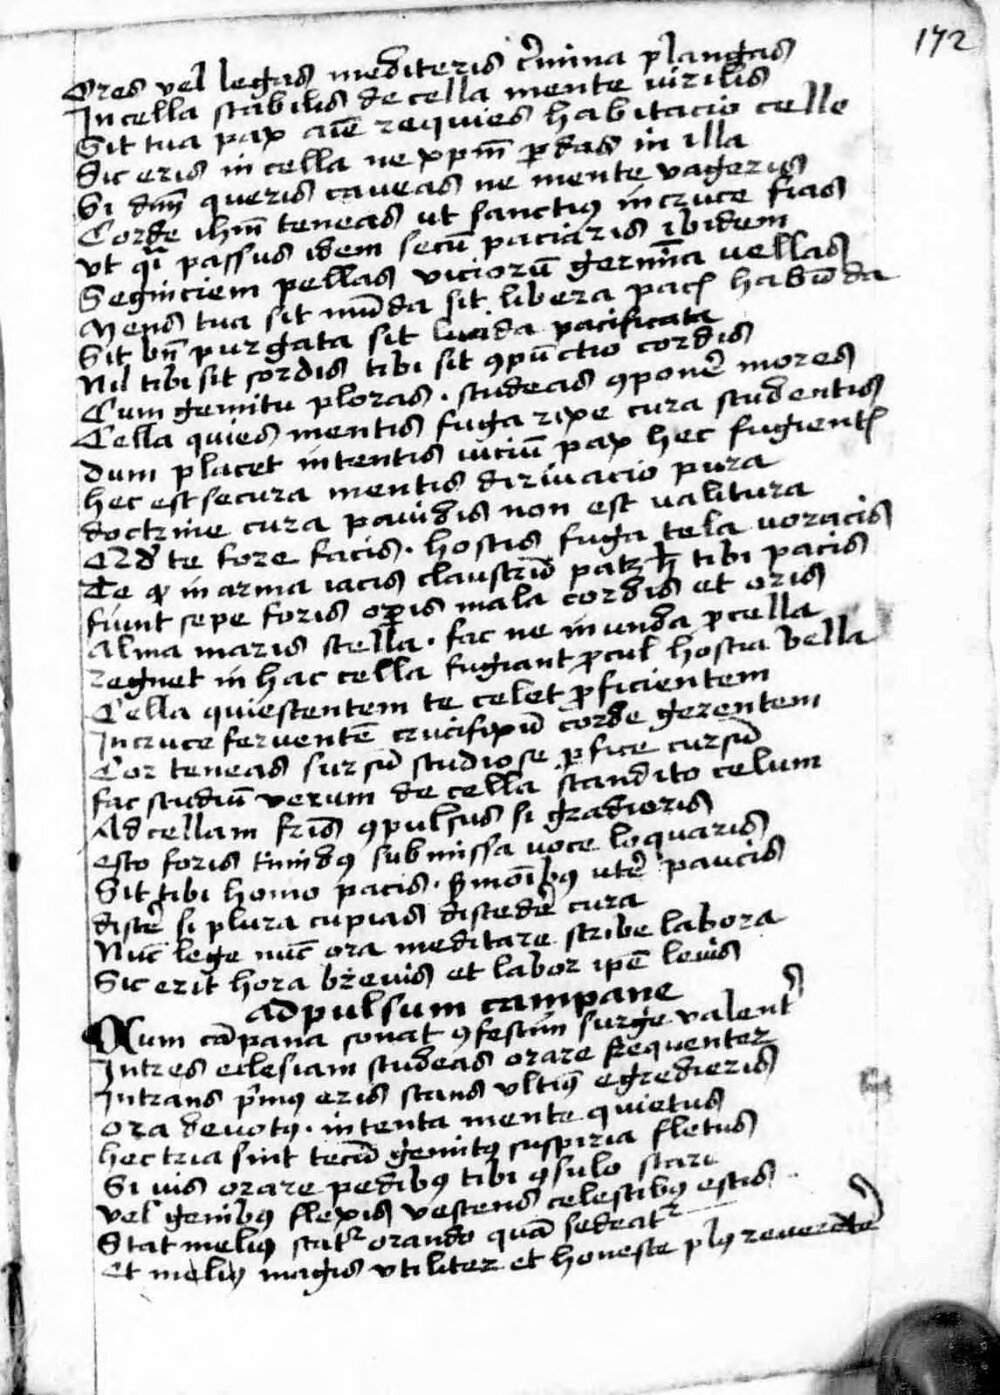 172
Ores vel legas mediteris c̄mina plangas
In cella stabilis de cella mente virilis
Sit tua pax ac̄ requies habitacio celle
Sic eris in cella ne xpm̄ p̄das in illa
Si dm̄ queris caveas ne mente vageris
Corde ihm̄ teneas ut sanctus in cruce fias
Ut q̄ passus idem secū paciaris ibidem
Segniciem pellas viciorū germīa vellas
Mens tua sit mūda sit libera pacꝭ habūda
Sit bn̄ purgata sit lucida pacificata
Nil tibi sit sordis tibi sit ꝯpūctio cordis
Cum gemitu ploras . studeas ꝯponē mores
Cella quies mentis fuga rixe cura studentis
Dum placet intentis viciū pax hec fugientꝭ
hec est secura mentis dirivacio pura
doctrine cura pauidis non est valitura
te fore facis . hostis fuga tela voracis
Te in arma iacis claustrū tibi pacis
fiunt sepe foris oꝑis mala cordis et oris
Alma maris stella . fac ne in unda ꝓcella
regnet in hac cella fugiant ꝓcul hostia bella
Cella quiescentem te celet ꝓficientem
In cruce ferventē crucifixū corde gerentem
Cor teneas sursū studiose ꝑfice cursū
fac studiū verum de cella scandito celum
Ad cellam fr̄is ꝯpulsus si gradieris
esto foris timidꝯ submissa voce loquaris
Sit tibi homo pacis . s̄monibꝯ utē paucis
discē si plura cupias discedē cura
Nūc lege nūc ora meditare scribe labora
Sic erit hora brevis et labor ipē levis
Ad pulsum campane
Qum cāpana sonat ꝯfestim surge valent̄
Intres eclesiam studeas orare frequenter
Intrans p̄mꝯ eris stans ultimꝯ egredieris
Ora devotꝯ . intenta mente quietus
hec tria sint tecū gemitꝯ suspiria fletus
Si vis orare pedibꝯ tibi ꝯsulo stare
vel genibꝯ flexis vescens celestibꝯ estis
Stat melius statr orando quā sedeatr
Et melius magis utiliter et honeste plꝯ reverēter